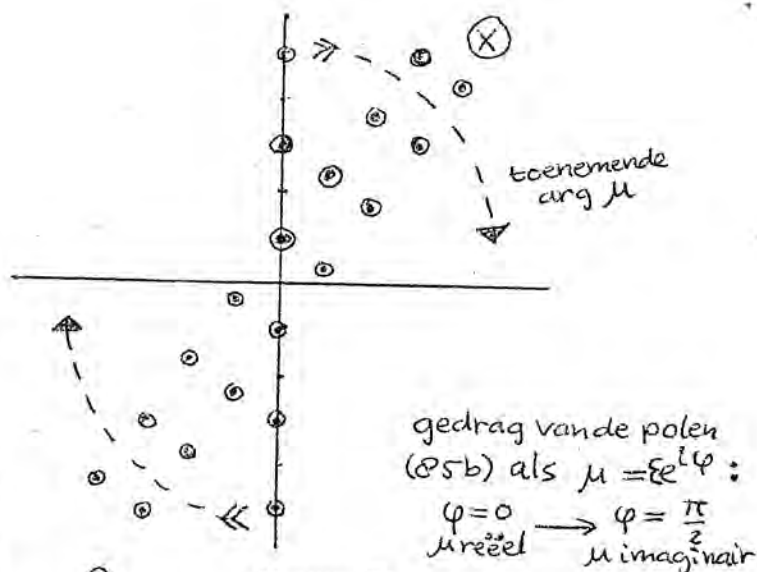 X
toenemende
arg μ
gedrag van de polen
(85b) als μ = εe^{iφ} :
φ = 0 → φ = π/2
μ reëel μ imaginair